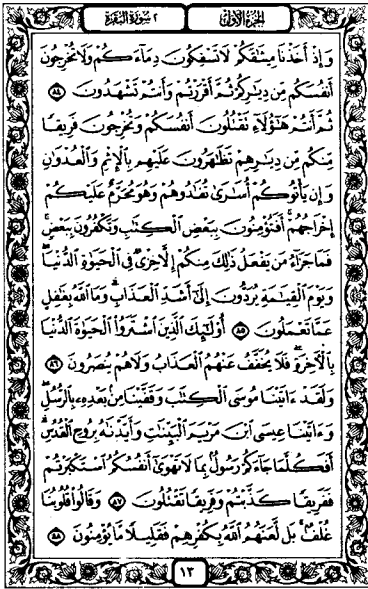 الجزء الأول ٢ سورة البقرة
وَإِذْ أَخَذْنَا مِيثَٰقَكُمْ لَا تَسْفِكُونَ دِمَآءَكُمْ وَلَا تُخْرِجُونَ
أَنفُسَكُم مِّن دِيَٰرِكُمْ ثُمَّ أَقْرَرْتُمْ وَأَنتُمْ تَشْهَدُونَ ٨٤
ثُمَّ أَنتُمْ هَٰٓؤُلَآءِ تَقْتُلُونَ أَنفُسَكُمْ وَتُخْرِجُونَ فَرِيقًا
مِّنكُم مِّن دِيَٰرِهِمْ تَظَٰهَرُونَ عَلَيْهِم بِٱلْإِثْمِ وَٱلْعُدْوَٰنِ
وَإِن يَأْتُوكُمْ أُسَٰرَىٰ تُفَٰدُوهُمْ وَهُوَ مُحَرَّمٌ عَلَيْكُمْ
إِخْرَاجُهُمْ ۚ أَفَتُؤْمِنُونَ بِبَعْضِ ٱلْكِتَٰبِ وَتَكْفُرُونَ بِبَعْضٍ ۚ
فَمَا جَزَآءُ مَن يَفْعَلُ ذَٰلِكَ مِنكُمْ إِلَّا خِزْىٌ فِى ٱلْحَيَوٰةِ ٱلدُّنْيَا ۖ
وَيَوْمَ ٱلْقِيَٰمَةِ يُرَدُّونَ إِلَىٰٓ أَشَدِّ ٱلْعَذَابِ ۗ وَمَا ٱللَّهُ بِغَٰفِلٍ
عَمَّا تَعْمَلُونَ ٨٥ أُو۟لَٰٓئِكَ ٱلَّذِينَ ٱشْتَرَوُا۟ ٱلْحَيَوٰةَ ٱلدُّنْيَا
بِٱلْءَاخِرَةِ ۖ فَلَا يُخَفَّفُ عَنْهُمُ ٱلْعَذَابُ وَلَا هُمْ يُنصَرُونَ ٨٦
وَلَقَدْ ءَاتَيْنَا مُوسَى ٱلْكِتَٰبَ وَقَفَّيْنَا مِنۢ بَعْدِهِۦ بِٱلرُّسُلِ ۖ
وَءَاتَيْنَا عِيسَى ٱبْنَ مَرْيَمَ ٱلْبَيِّنَٰتِ وَأَيَّدْنَٰهُ بِرُوحِ ٱلْقُدُسِ ۗ
أَفَكُلَّمَا جَآءَكُمْ رَسُولٌۢ بِمَا لَا تَهْوَىٰٓ أَنفُسُكُمُ ٱسْتَكْبَرْتُمْ
فَفَرِيقًا كَذَّبْتُمْ وَفَرِيقًا تَقْتُلُونَ ٨٧ وَقَالُوا۟ قُلُوبُنَا
غُلْفٌۢ ۚ بَل لَّعَنَهُمُ ٱللَّهُ بِكُفْرِهِمْ فَقَلِيلًا مَّا يُؤْمِنُونَ ٨٨
١٣